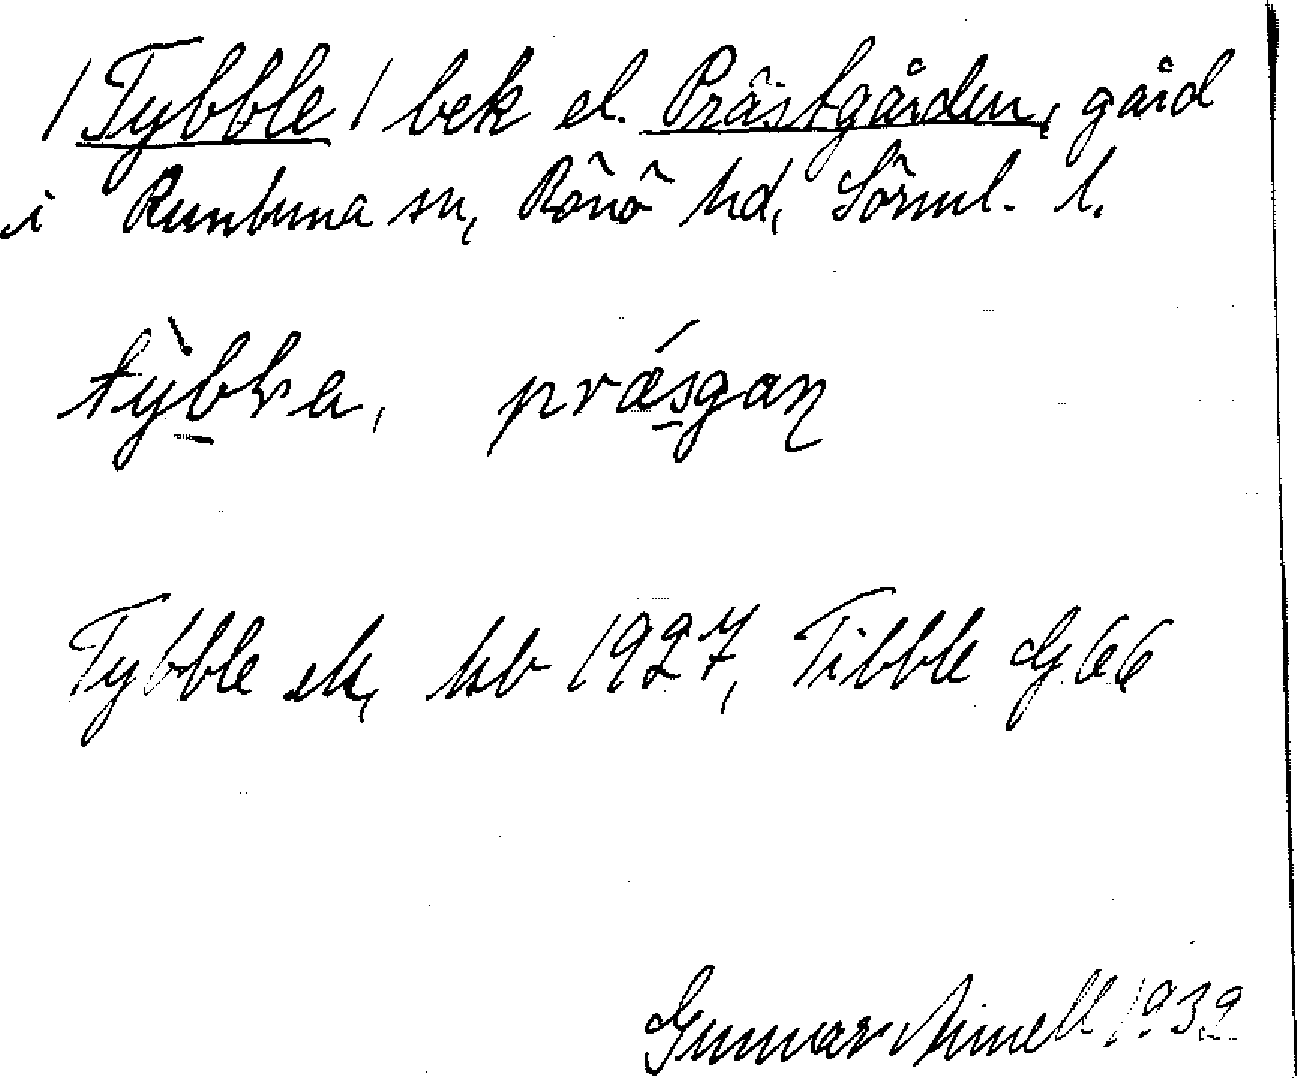 / Tybble / bek el. Prästgården, gård
i Runtuna sn, Rönö hd, Sörml. l.
tỳbḷa, prǽsgaɳ
Tybble ek, kb 1927, Tibble G 66
Gunnar 1932